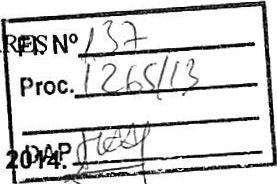 Fl. Nº 137
Proc. 1265/13
DAP
2014.